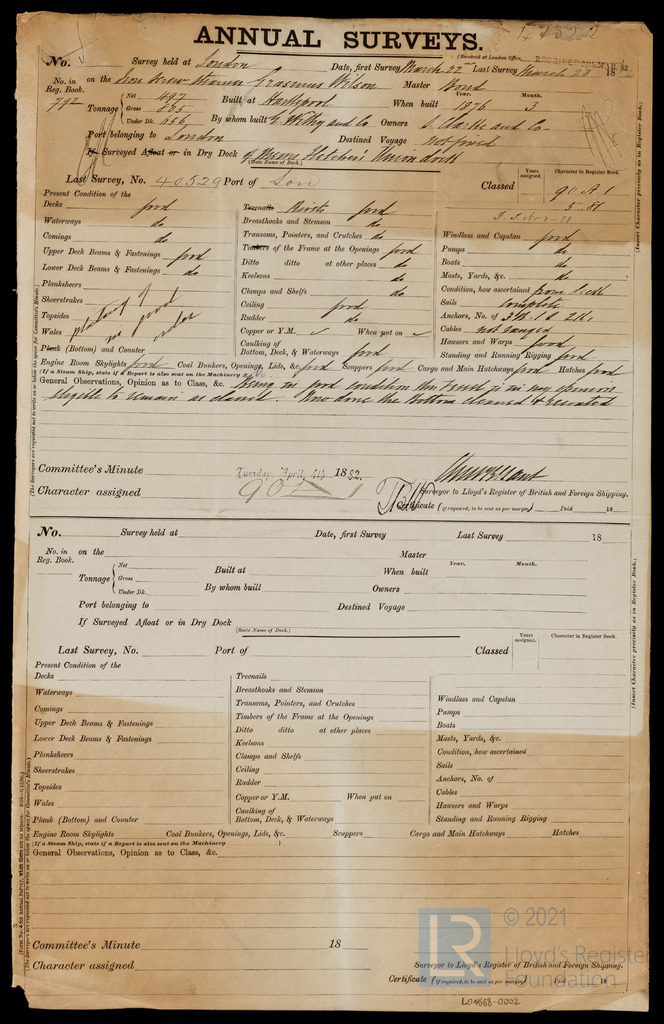 ANNUAL SURVEYS.
(Received at London Office,
No. Survey held at London Date, first Survey March 22 Last Survey March 28 18
No. in Reg. Book. on the Iron Screw Steamer Erasmus Wilson Master Bond
792 Tonnage { Net 497 Gross Under Dk. 656 Built at Hartlepool When built Year. 1876 Month. 3
By whom built E. Withy and Co Owners Clarke and Co
Port belonging to London Destined Voyage not fixed
If Surveyed Afloat or in Dry Dock Messrs Fletcher's Union dock
(State Name of Dock.)
Last Survey, No. 40529 Port of Lon Classed Years assigned. Character in Register Book. 90 A 1
5.81
Present Condition of the
Decks good
Waterways do
Comings do
Upper Deck Beams & Fastenings good
Lower Deck Beams & Fastenings do
Planksheers
Sheerstrakes
Topsides
Wales
plating in good order
Plank (Bottom) and Counter
Treenails Rivets good
Breasthooks and Stemson do
Transoms, Pointers, and Crutches do
Timbers of the Frame at the Openings good
Ditto ditto at other places do
Keelsons do
Clamps and Shelfs do
Ceiling good
Rudder do
Copper or Y.M. ✓ When put on ✓
Caulking of Bottom, Deck, & Waterways good
Windlass and Capstan good
Pumps do
Boats do
Masts, Yards, &c. do
Condition, how ascertained from deck
Sails complete
Anchors, No. of 3 B. 1 S. 2 K.
Cables not ranged
Hawsers and Warps good
Standing and Running Rigging good
Engine Room Skylights good Coal Bunkers, Openings, Lids, &c. good Scuppers good Cargo and Main Hatchways good Hatches good
(If a Steam Ship, state if a Report is also sent on the Machinery
General Observations, Opinion as to Class, &c. Being in good condition this Vessel is in my opinion
eligible to remain as classed. Now done the Bottom cleaned & recoated
Committee's Minute Tuesday, April 4th 1882.
Character assigned 90 A 1
Surveyor to Lloyd's Register of British and Foreign Shipping.
Certificate (if required, to be sent as per margin) Paid 18
(The Surveyors are requested not to write on or below the space for Committee's Minute.)
(Insert Character precisely as in Register Book.)
No. Survey held at Date, first Survey Last Survey 18
No. in Reg. Book. on the Master
Tonnage { Net Gross Under Dk. Built at When built Year. Month.
By whom built Owners
Port belonging to Destined Voyage
If Surveyed Afloat or in Dry Dock
(State Name of Dock.)
Last Survey, No. Port of Classed Years assigned. Character in Register Book.
Present Condition of the
Decks
Waterways
Comings
Upper Deck Beams & Fastenings
Lower Deck Beams & Fastenings
Planksheers
Sheerstrakes
Topsides
Wales
Plank (Bottom) and Counter
Treenails
Breasthooks and Stemson
Transoms, Pointers, and Crutches
Timbers of the Frame at the Openings
Ditto ditto at other places
Keelsons
Clamps and Shelfs
Ceiling
Rudder
Copper or Y.M. When put on
Caulking of Bottom, Deck, & Waterways
Windlass and Capstan
Pumps
Boats
Masts, Yards, &c.
Condition, how ascertained
Sails
Anchors, No. of
Cables
Hawsers and Warps
Standing and Running Rigging
Engine Room Skylights Coal Bunkers, Openings, Lids, &c. Scuppers Cargo and Main Hatchways Hatches
(If a Steam Ship, state if a Report is also sent on the Machinery )
General Observations, Opinion as to Class, &c.
Committee's Minute 18
Character assigned
Surveyor to Lloyd's Register of British and Foreign Shipping.
Certificate (if required, to be sent as per margin) Paid 18
(The Surveyors are requested not to write on or below the space for Committee's Minute.)
(Insert Character precisely as in Register Book.)
LR © 2021
Lloyd's Register
Foundation
LON868-0002